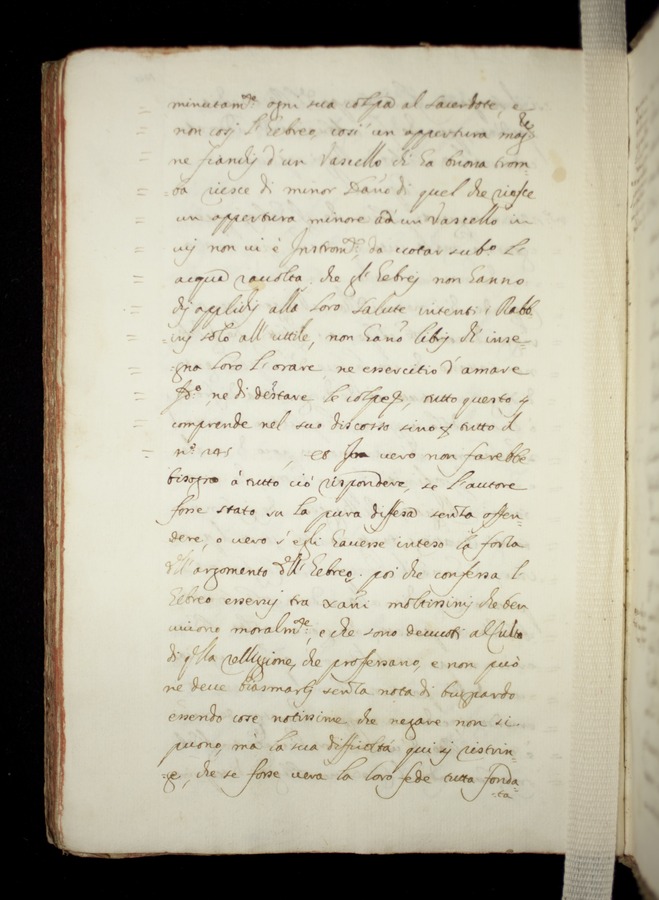 minutam.te ogni sua colpa al sacerdote, e
non così l'Hebreo, così un appertura mag.re
ne fianchi d'un Vascello ch'ha buona trom=
=ba riesce di minor Dano di quel che riesce
un appertura minore ad un Vascello in
cui non vi è Instrom.to da votar sub.o l'
acqua racolta. che gl'Hebrej non hanno
chi applichi alla loro salute intenti i Rabb.
=inj solo all'uttile, non hano librj ch'inse=
=gna loro l'orare, ne essercitio d'amare
ne di detestare le colpe, tutto questo
comprende nel suo discorso sino tutto il
n.o
In vero non farebbe
bisogno à tutto ciò rispondere, se l'autore
fosse stato su la pura diffesa senza offen=
dere, o vero s'egli havesse inteso la forza
dell'argomento dell'Hebreo. poi che confessa l'
Hebreo esservj tra moltissimj che ben
vivono moralm.te, e che sono devvoti al Culto
di q.lla relliggione, che professano, e non può
ne deve biasmarlj senza nota di buggiardo
essendo cose notissime che negare non si
puono, mà la sua difficoltà qui sj restrin=
=ge, che se fosse vera la loro fede tutta fonda=
=ta